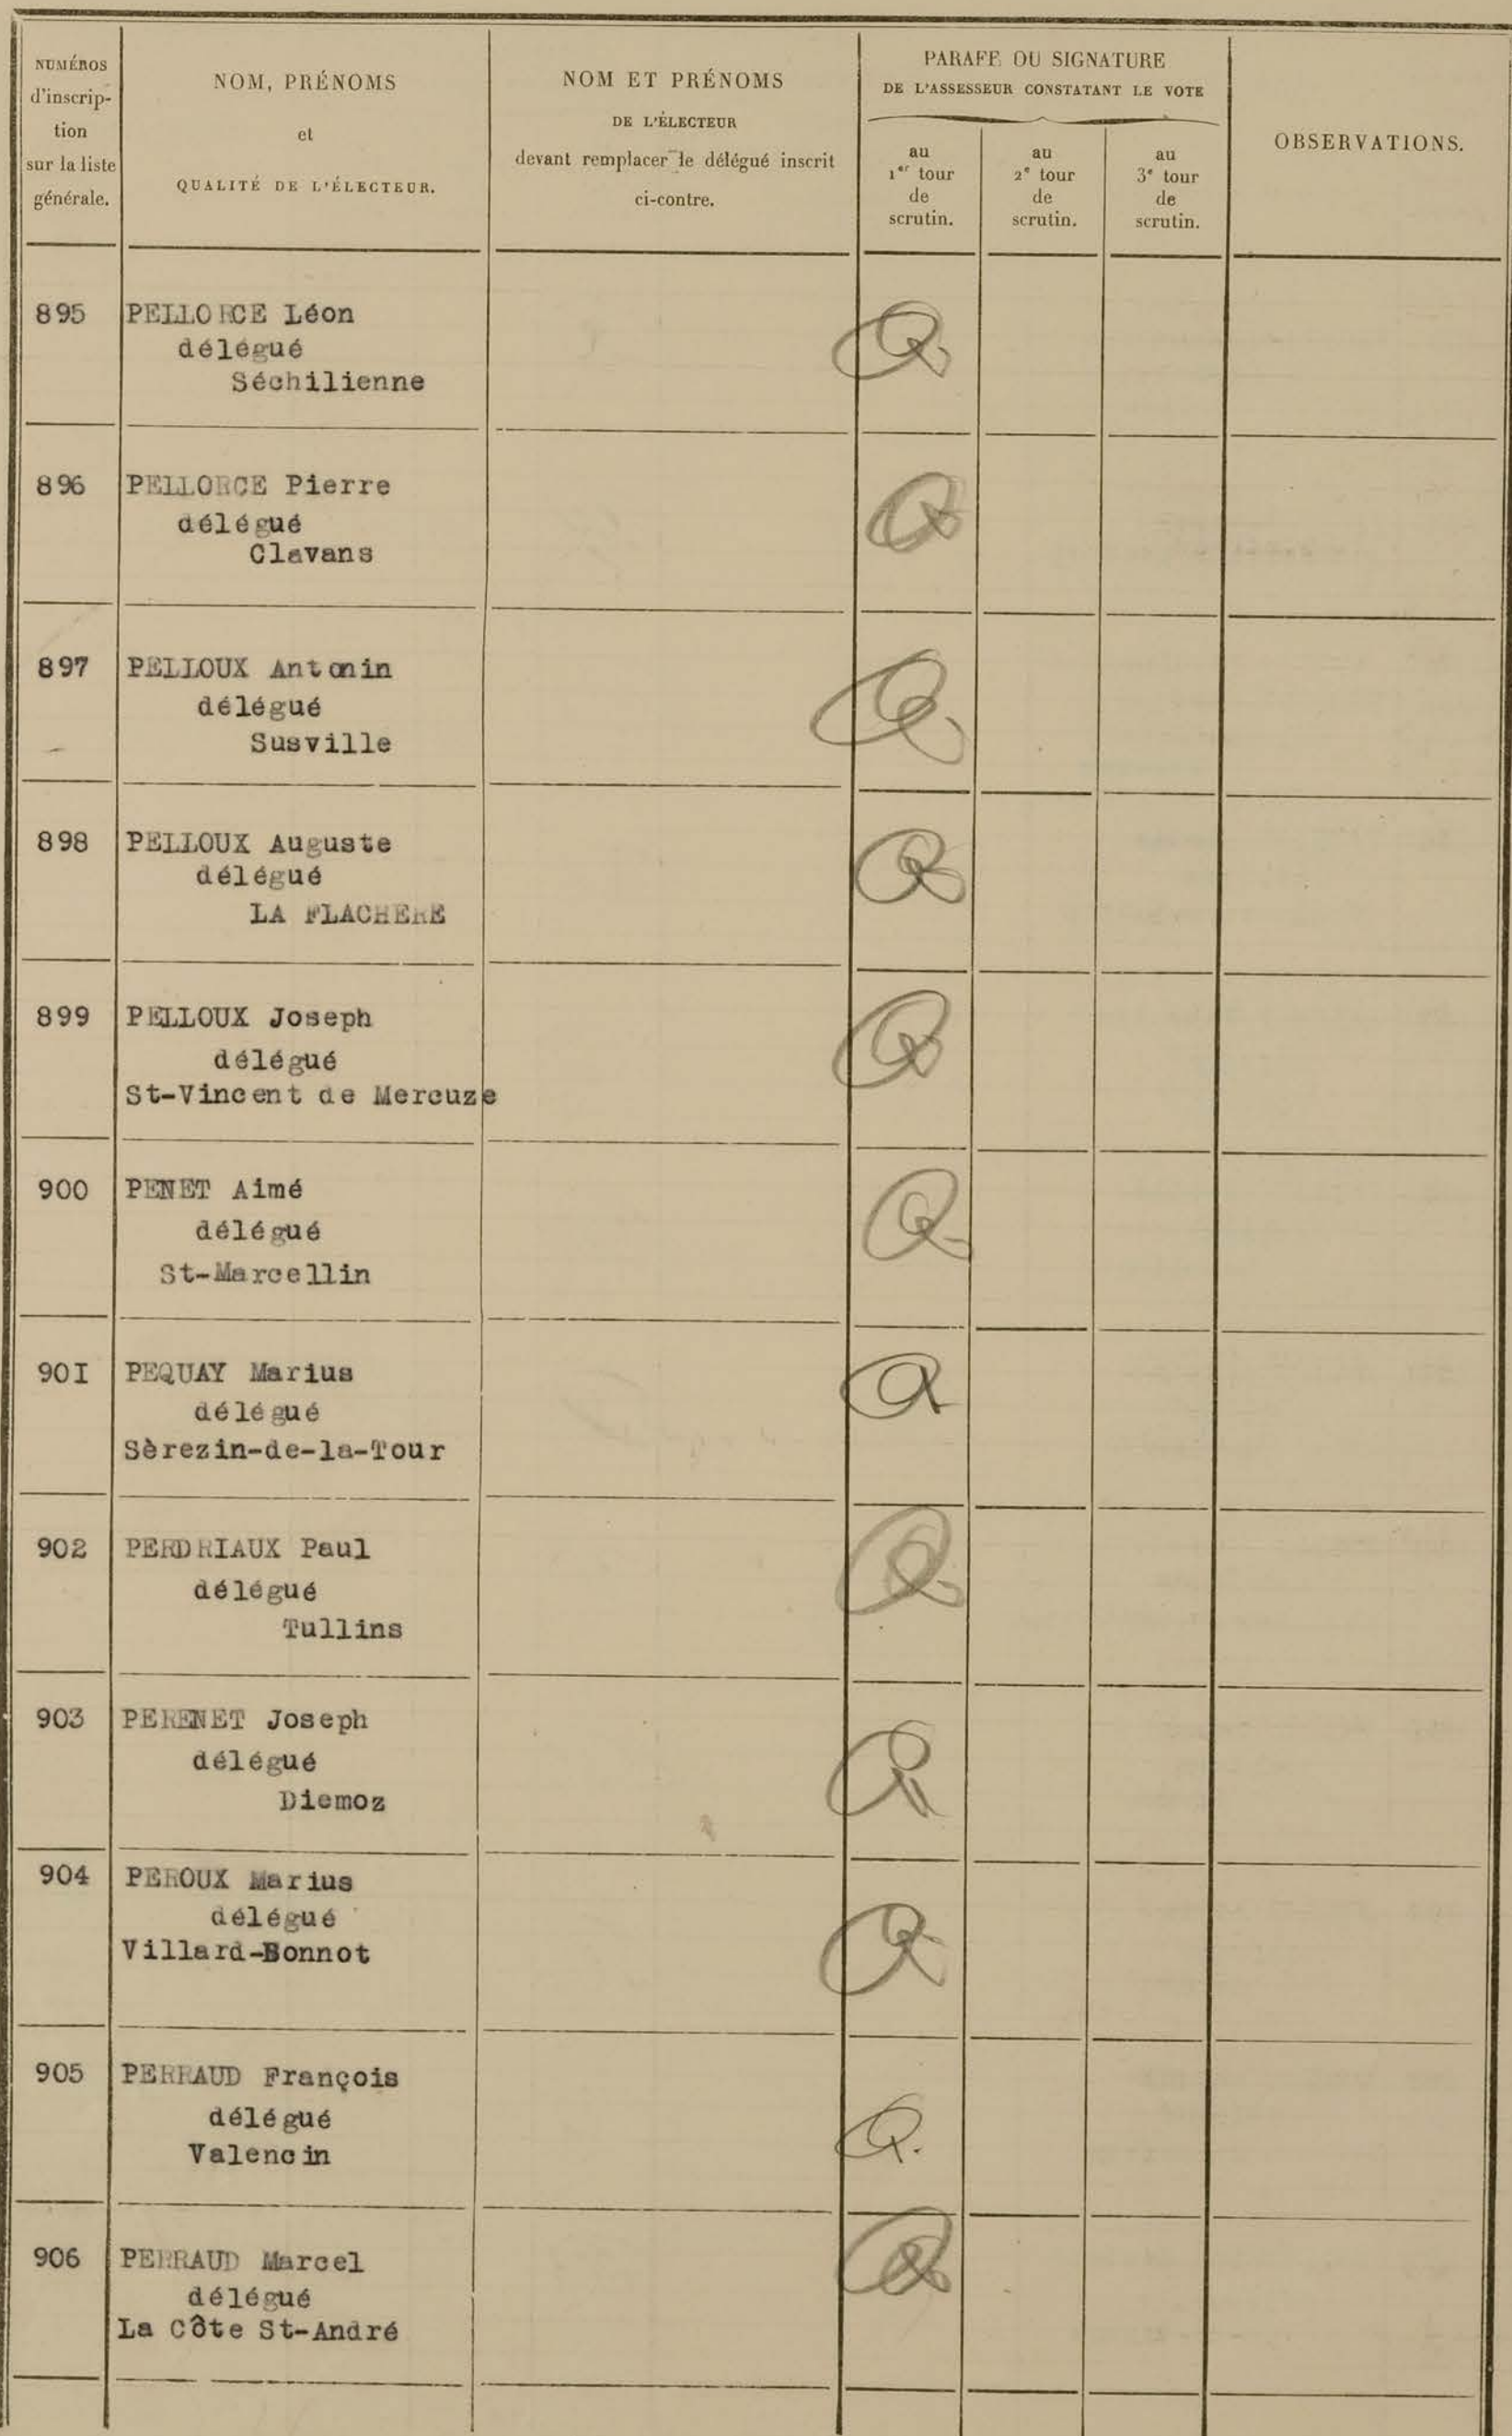 NUMÉROS
d'inscrip-
tion
sur la liste
générale.
NOM, PRÉNOMS
et
QUALITÉ DE L'ÉLECTEUR.
NOM ET PRÉNOMS
DE L'ÉLECTEUR
devant remplacer le délégué inscrit
ci-contre.
PARAFE OU SIGNATURE
DE L'ASSESSEUR CONSTATANT LE VOTE
au
1er tour
de
scrutin.
au
2e tour
de
scrutin.
au
3e tour
de
scrutin.
OBSERVATIONS.
895 PELLORCE Léon
délégué
Séchilienne
896 PELLORCE Pierre
délégué
Clavans
897 PELLOUX Antonin
délégué
Susville
898 PELLOUX Auguste
délégué
LA FLACHERE
899 PELLOUX Joseph
délégué
St-Vincent de Mercuze
900 PENET Aimé
délégué
St-Marcellin
90I PEQUAY Marius
délégué
Sèrezin-de-la-Tour
902 PERDRIAUX Paul
délégué
Tullins
903 PERENET Joseph
délégué
Diemoz
904 PEROUX Marius
délégué
Villard-Bonnot
905 PERRAUD François
délégué
Valencin
906 PERRAUD Marcel
délégué
La Côte St-André